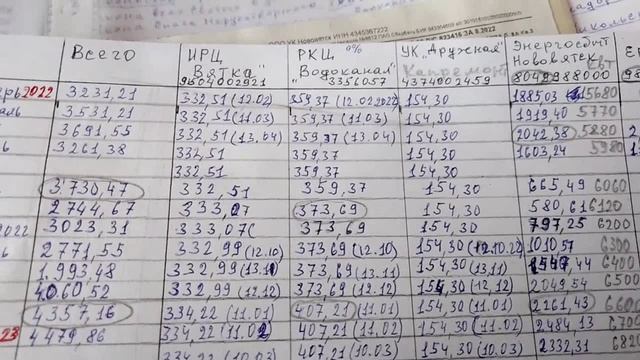 ООО УК Нововятск ИНН 4345367222
Всего ИРЦ "Вятка" РКЦ 0% "Водоканал" УК "Дружная" Энергосбыт Нововятск
9504002921 3356057 4374002459 8049988000 квт
Капремонт
2022 3231,21 332,51 (12.02) 359,37 (12.02.2022) 154,30 1885,03 5680
3531,21 332,51 (11.03) 359,37 (11.03) 154,30 1919,40 5770
3691,55 332,51 (13.04) 359,37 (13.04) 154,30 2042,38 5880
3261,38 332,51 359,37 154,30 1603,24 5980
332,51 359,37 154,30
3730,47 332,51 359,37 154,30 665,49 6060
2744,67 333,07 373,69 154,30 580,61 6120
2022 3023,31 333,07 373,69 154,30 797,25 6200
2771,55 332,99 (12.10) 373,69 (12.10) 154,30 (12.10.22 1010,57 6300
1.993,48 332,99 (13.11) 373,69 (13.11) 154,30 (13.11) 6400
4060,52 332,99 (12.12) 373,69 (12.12) 154,30 (12.12) 2049,54 6500
4357,16 334,22 (11.01) 407,21 (11.01) 154,30 (11.01) 2261,43
23 4479,86 334,22 (11.02) 407,21 (11.02) 154,30 (11.02) 2484,13
334,22 (10.03) 407,21 (10.03) 154,30 (10.03) 2332,31